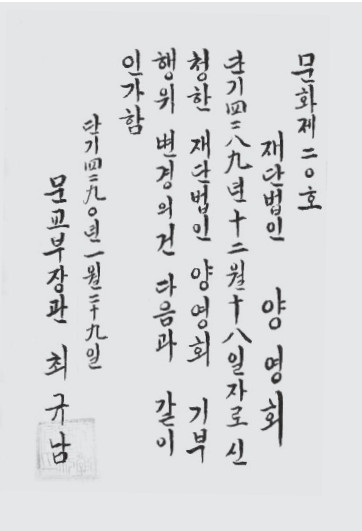 문화제二〇호
재단법인 양영회
단기四二八九년十二월十八일자로 신
청한 재단법인 양영회 기부
행위 변경의건 다음과 같이
인가함
단기四二九〇년一월二十九일
문교부장관 최규남